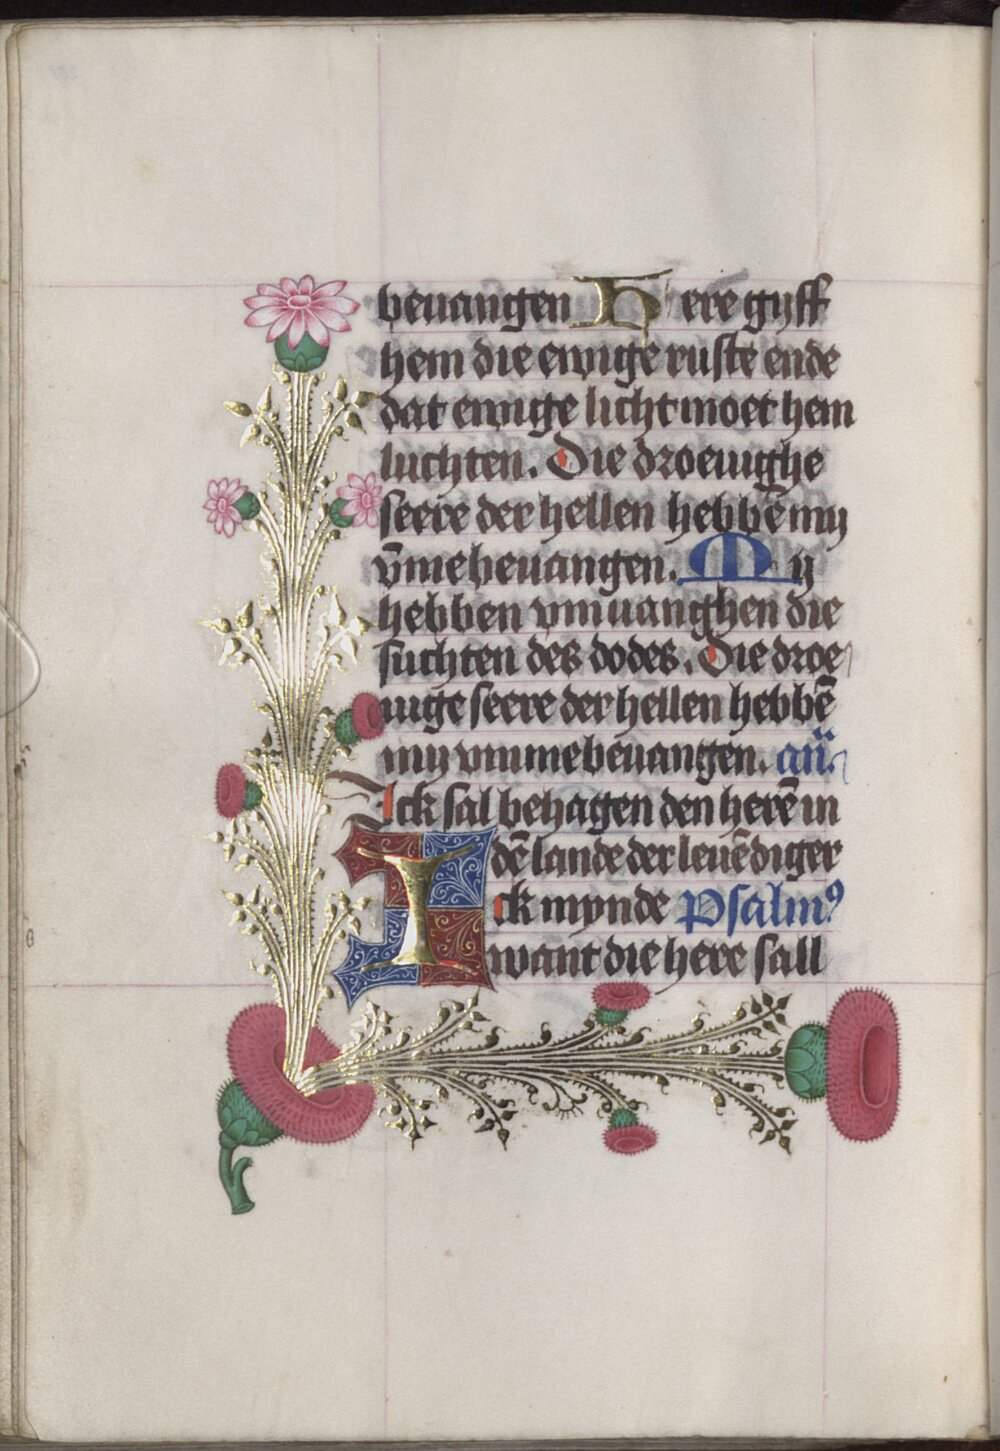 beuangen Here gyff
hem die ewige ruste ende
dat ewige licht moet hem
luchten. Die droeuighe
seere der hellen hebbē my
v̄mebeuangen. My
hebben vmuanghen die
suchten des dodes. Die droe
uige seere der hellen hebbē
my vmmebeuangen. an̄.
Ick sal behagen den herē in
dē lande der leuēdiger
Ick mynde Psalmꝰ
want die here sall